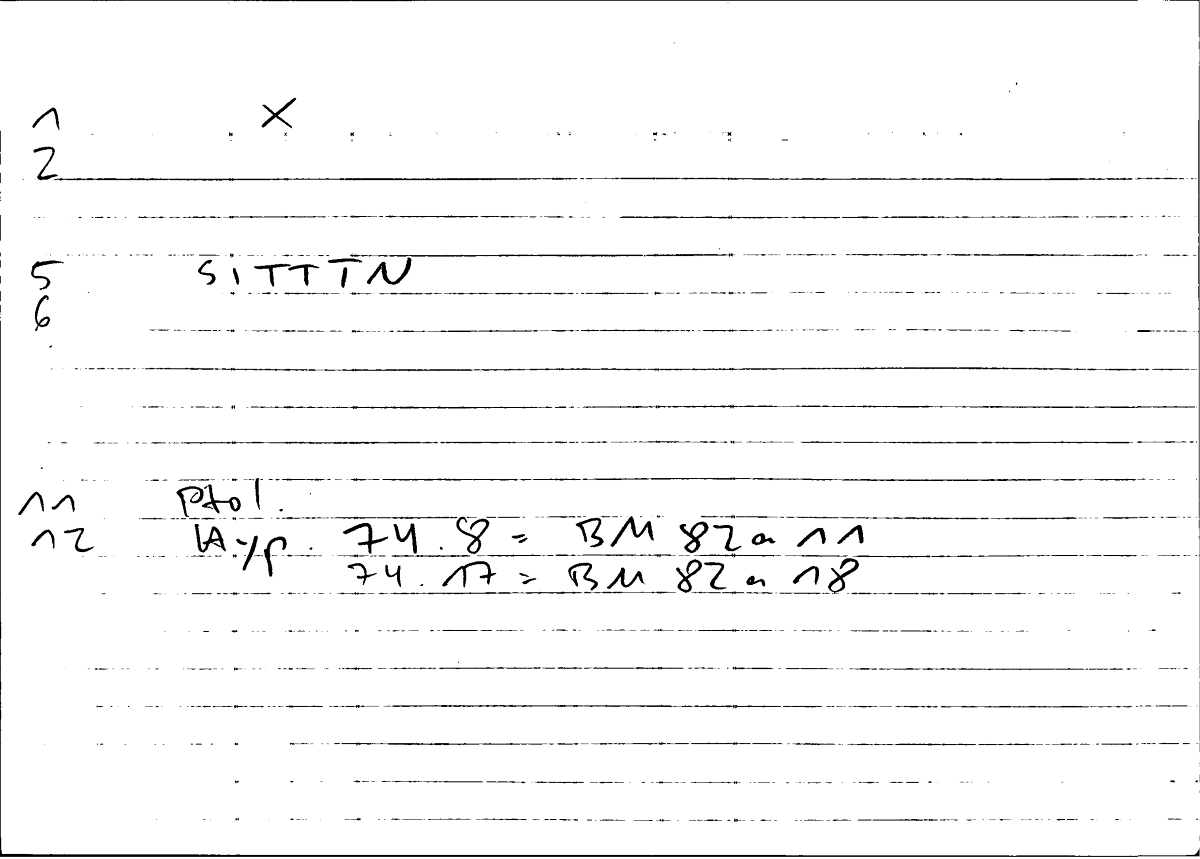 1 X
2
5 SiTTTN
6
11 Ptol.
12 Kyp. 74.8 = BM 82 a 11
74.17 = BM 82 a 18